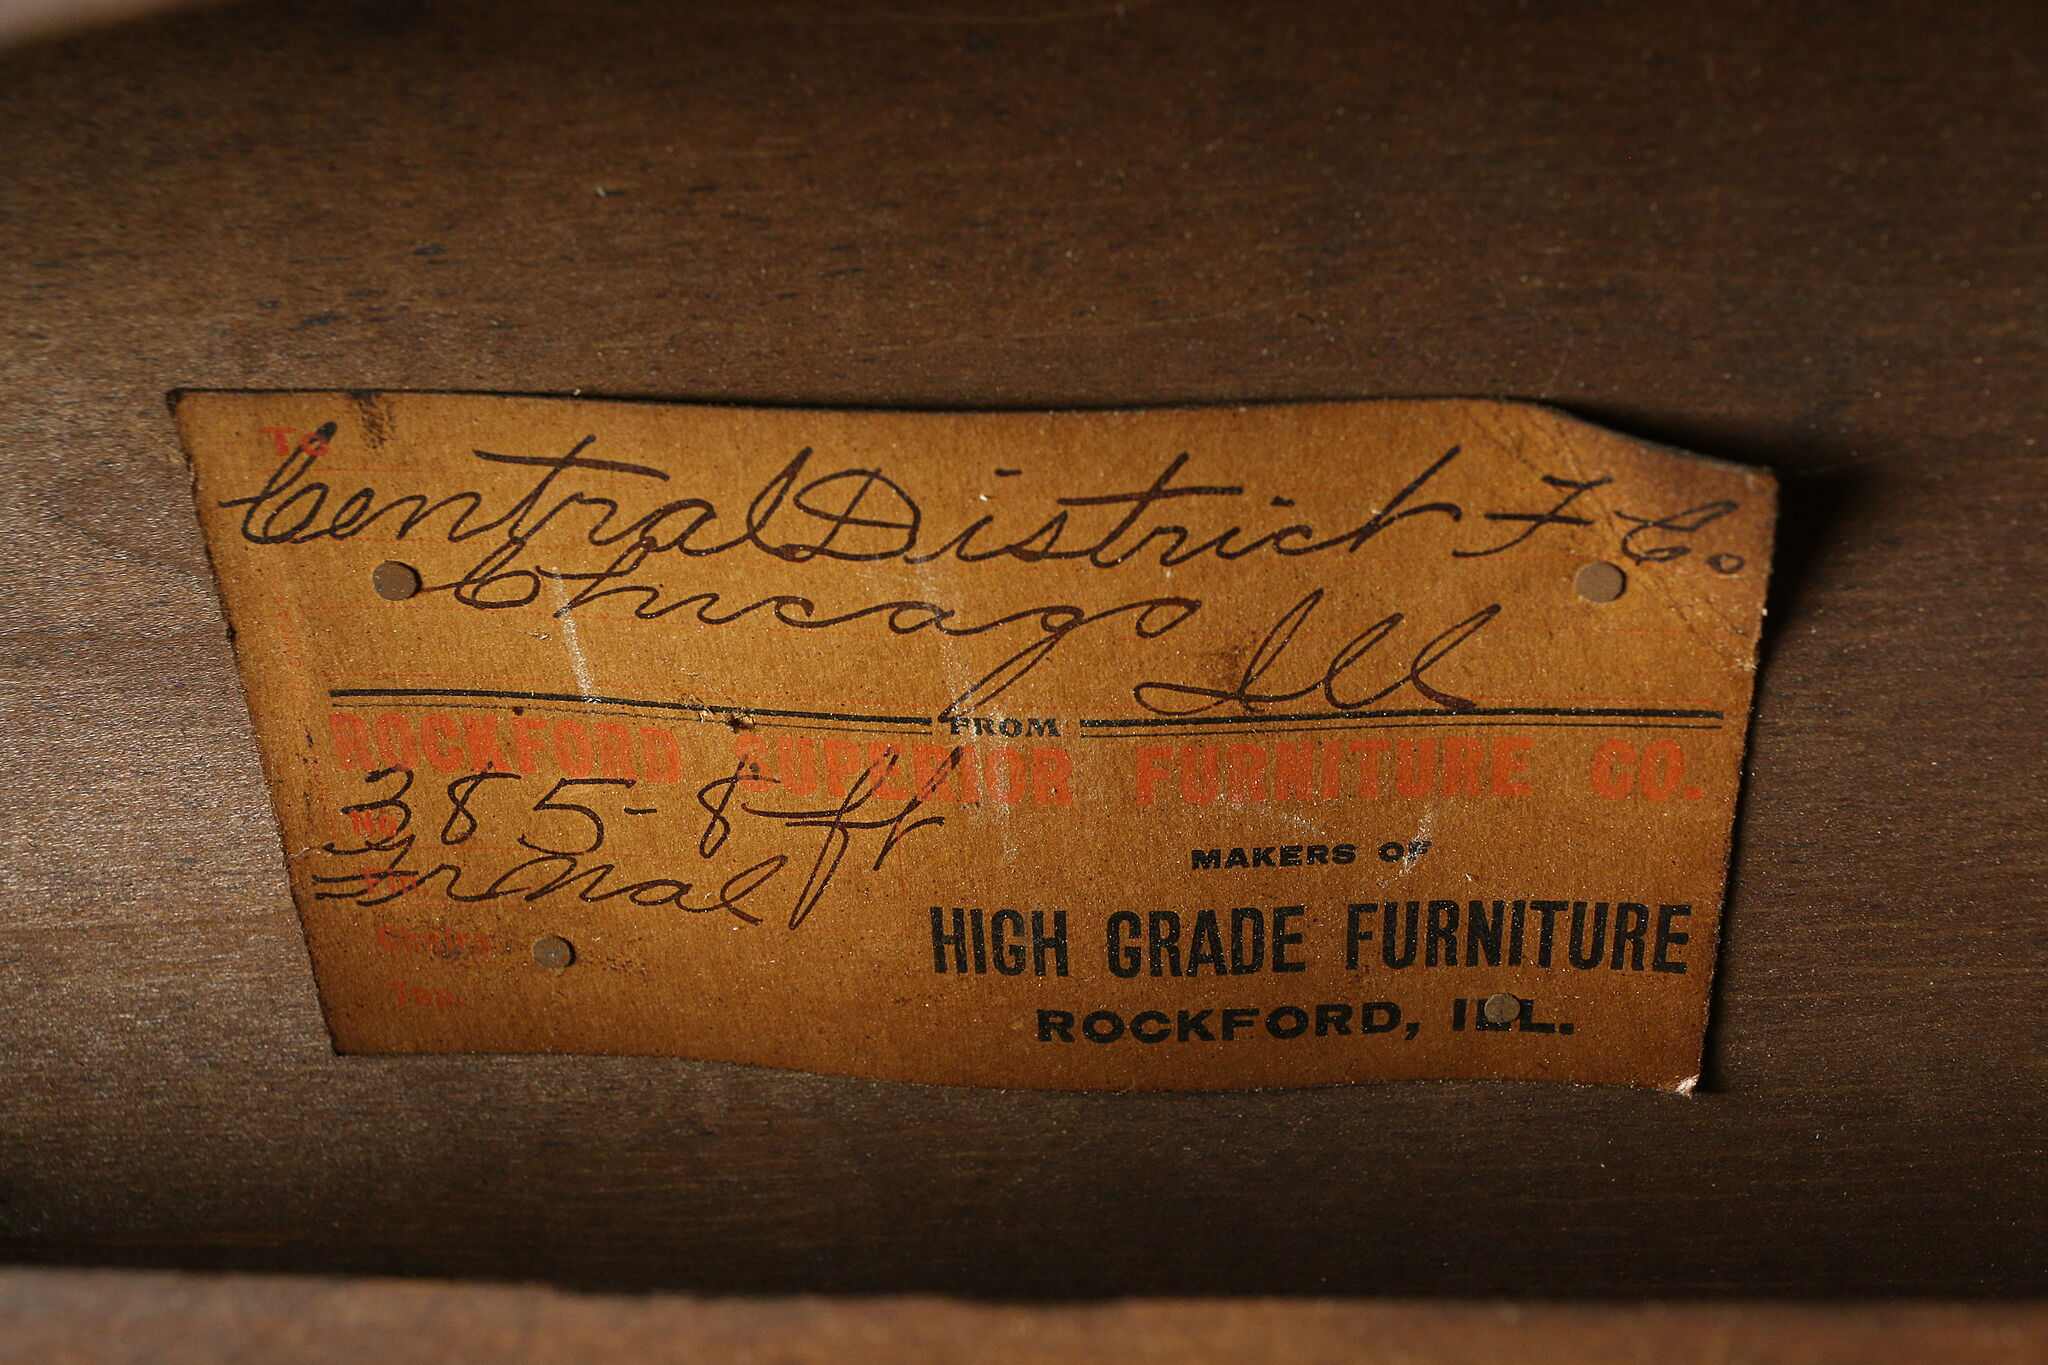 TO
Central District F. Co.
Chicago Ill
FROM
ROCKFORD SUPERIOR FURNITURE CO.
No. 385-8 ft
Fin.
MAKERS OF
Chairs
HIGH GRADE FURNITURE
Top.
ROCKFORD, ILL.